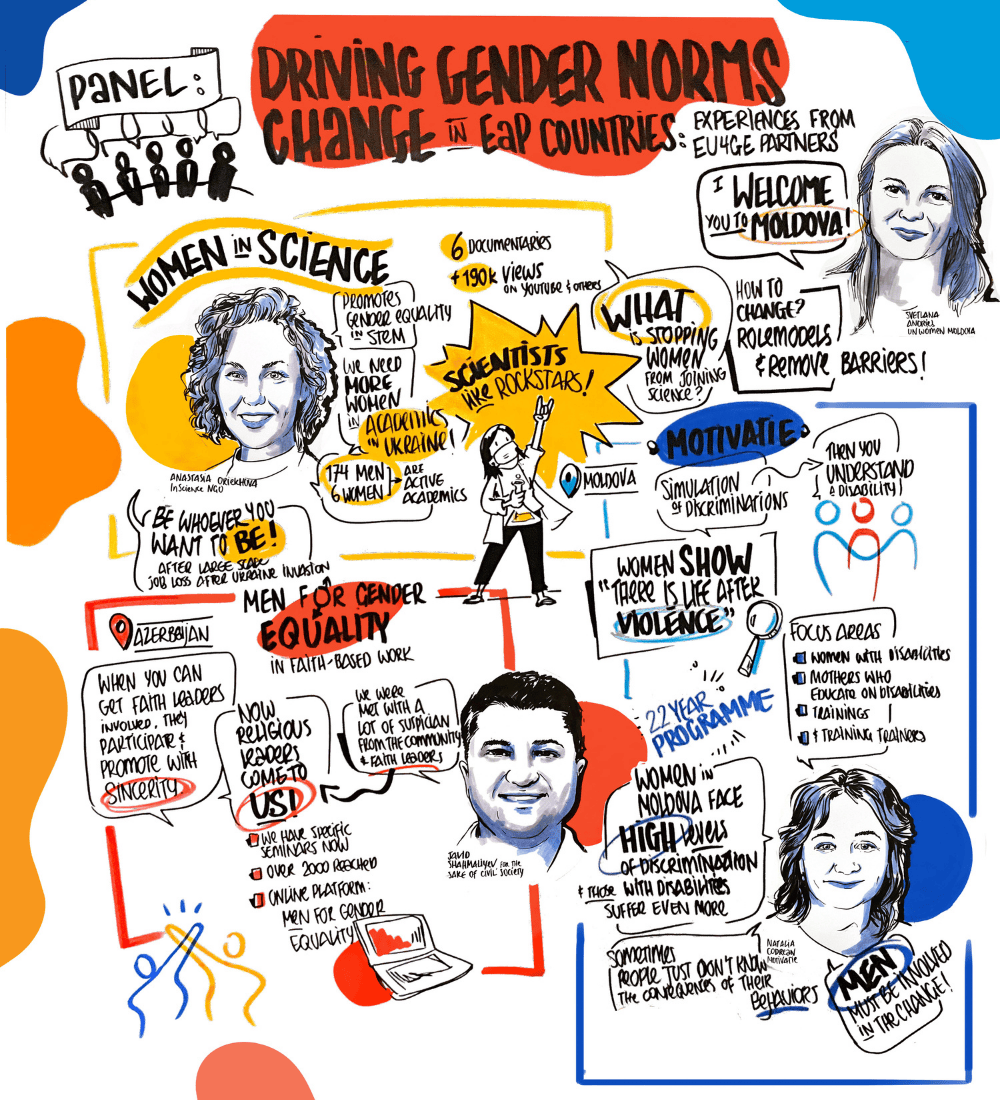 PANEL:
DRIVING GENDER NORMS
CHANGE IN EaP COUNTRIES:
EXPERIENCES FROM
EU4GE PARTNERS
I WELCOME
YOU TO MOLDOVA!
SVETLANA
ANDRIEȘ
UN WOMEN MOLDOVA
WOMEN IN SCIENCE
6 DOCUMENTARIES
+190K VIEWS
ON YOUTUBE & OTHERS
PROMOTES
GENDER EQUALITY
IN STEM
WE NEED
MORE
WOMEN
IN ACADEMICS
IN UKRAINE!
174 MEN
6 WOMEN
ARE
ACTIVE
ACADEMICS
SCIENTISTS
like ROCKSTARS!
WHAT
IS STOPPING
WOMEN
FROM JOINING
SCIENCE?
HOW TO
CHANGE?
ROLEMODELS
& REMOVE BARRIERS!
ANASTASIA ORIEKHOVA
InScience NGO
BE WHOEVER YOU
WANT TO BE!
AFTER LARGE SCALE
JOB LOSS AFTER UKRAINE INVASION
MOLDOVA
MOTIVATIE
SIMULATION
OF DISCRIMINATIONS
THEN YOU
UNDERSTAND
& DISABILITY
WOMEN SHOW
"THERE IS LIFE AFTER
VIOLENCE"
FOCUS AREAS
WOMEN WITH DISABILITIES
MOTHERS WHO
EDUCATE ON DISABILITIES
TRAININGS
& TRAINING TRAINERS
22 YEAR
PROGRAMME
WOMEN IN
MOLDOVA FACE
HIGH levels
OF DISCRIMINATION
& THOSE WITH DISABILITIES
SUFFER EVEN MORE
SOMETIMES
PEOPLE JUST DON'T KNOW
THE CONSEQUENCES OF THEIR
BEHAVIORS
NATALIA
CODREAN
MOTIVATIE
MEN
MUST BE INVOLVED
IN THE CHANGE!
MEN FOR GENDER
EQUALITY
IN FAITH-BASED WORK
AZERBAIJAN
WHEN YOU CAN
GET FAITH LEADERS
INVOLVED, THEY
PARTICIPATE &
PROMOTE WITH
SINCERITY
NOW
RELIGIOUS
LEADERS
COME TO
US!
WE WERE
MET WITH A
LOT OF SUSPICIAN
FROM THE COMMUNITY
& FAITH LEADERS
WE HAVE SPECIFIC
SEMINARS NOW
OVER 2000 REACHED
ONLINE PLATFORM:
MEN FOR GENDER
EQUALITY
JAVID
SHAHMALIYEV FOR THE
SAKE OF CIVIL SOCIETY